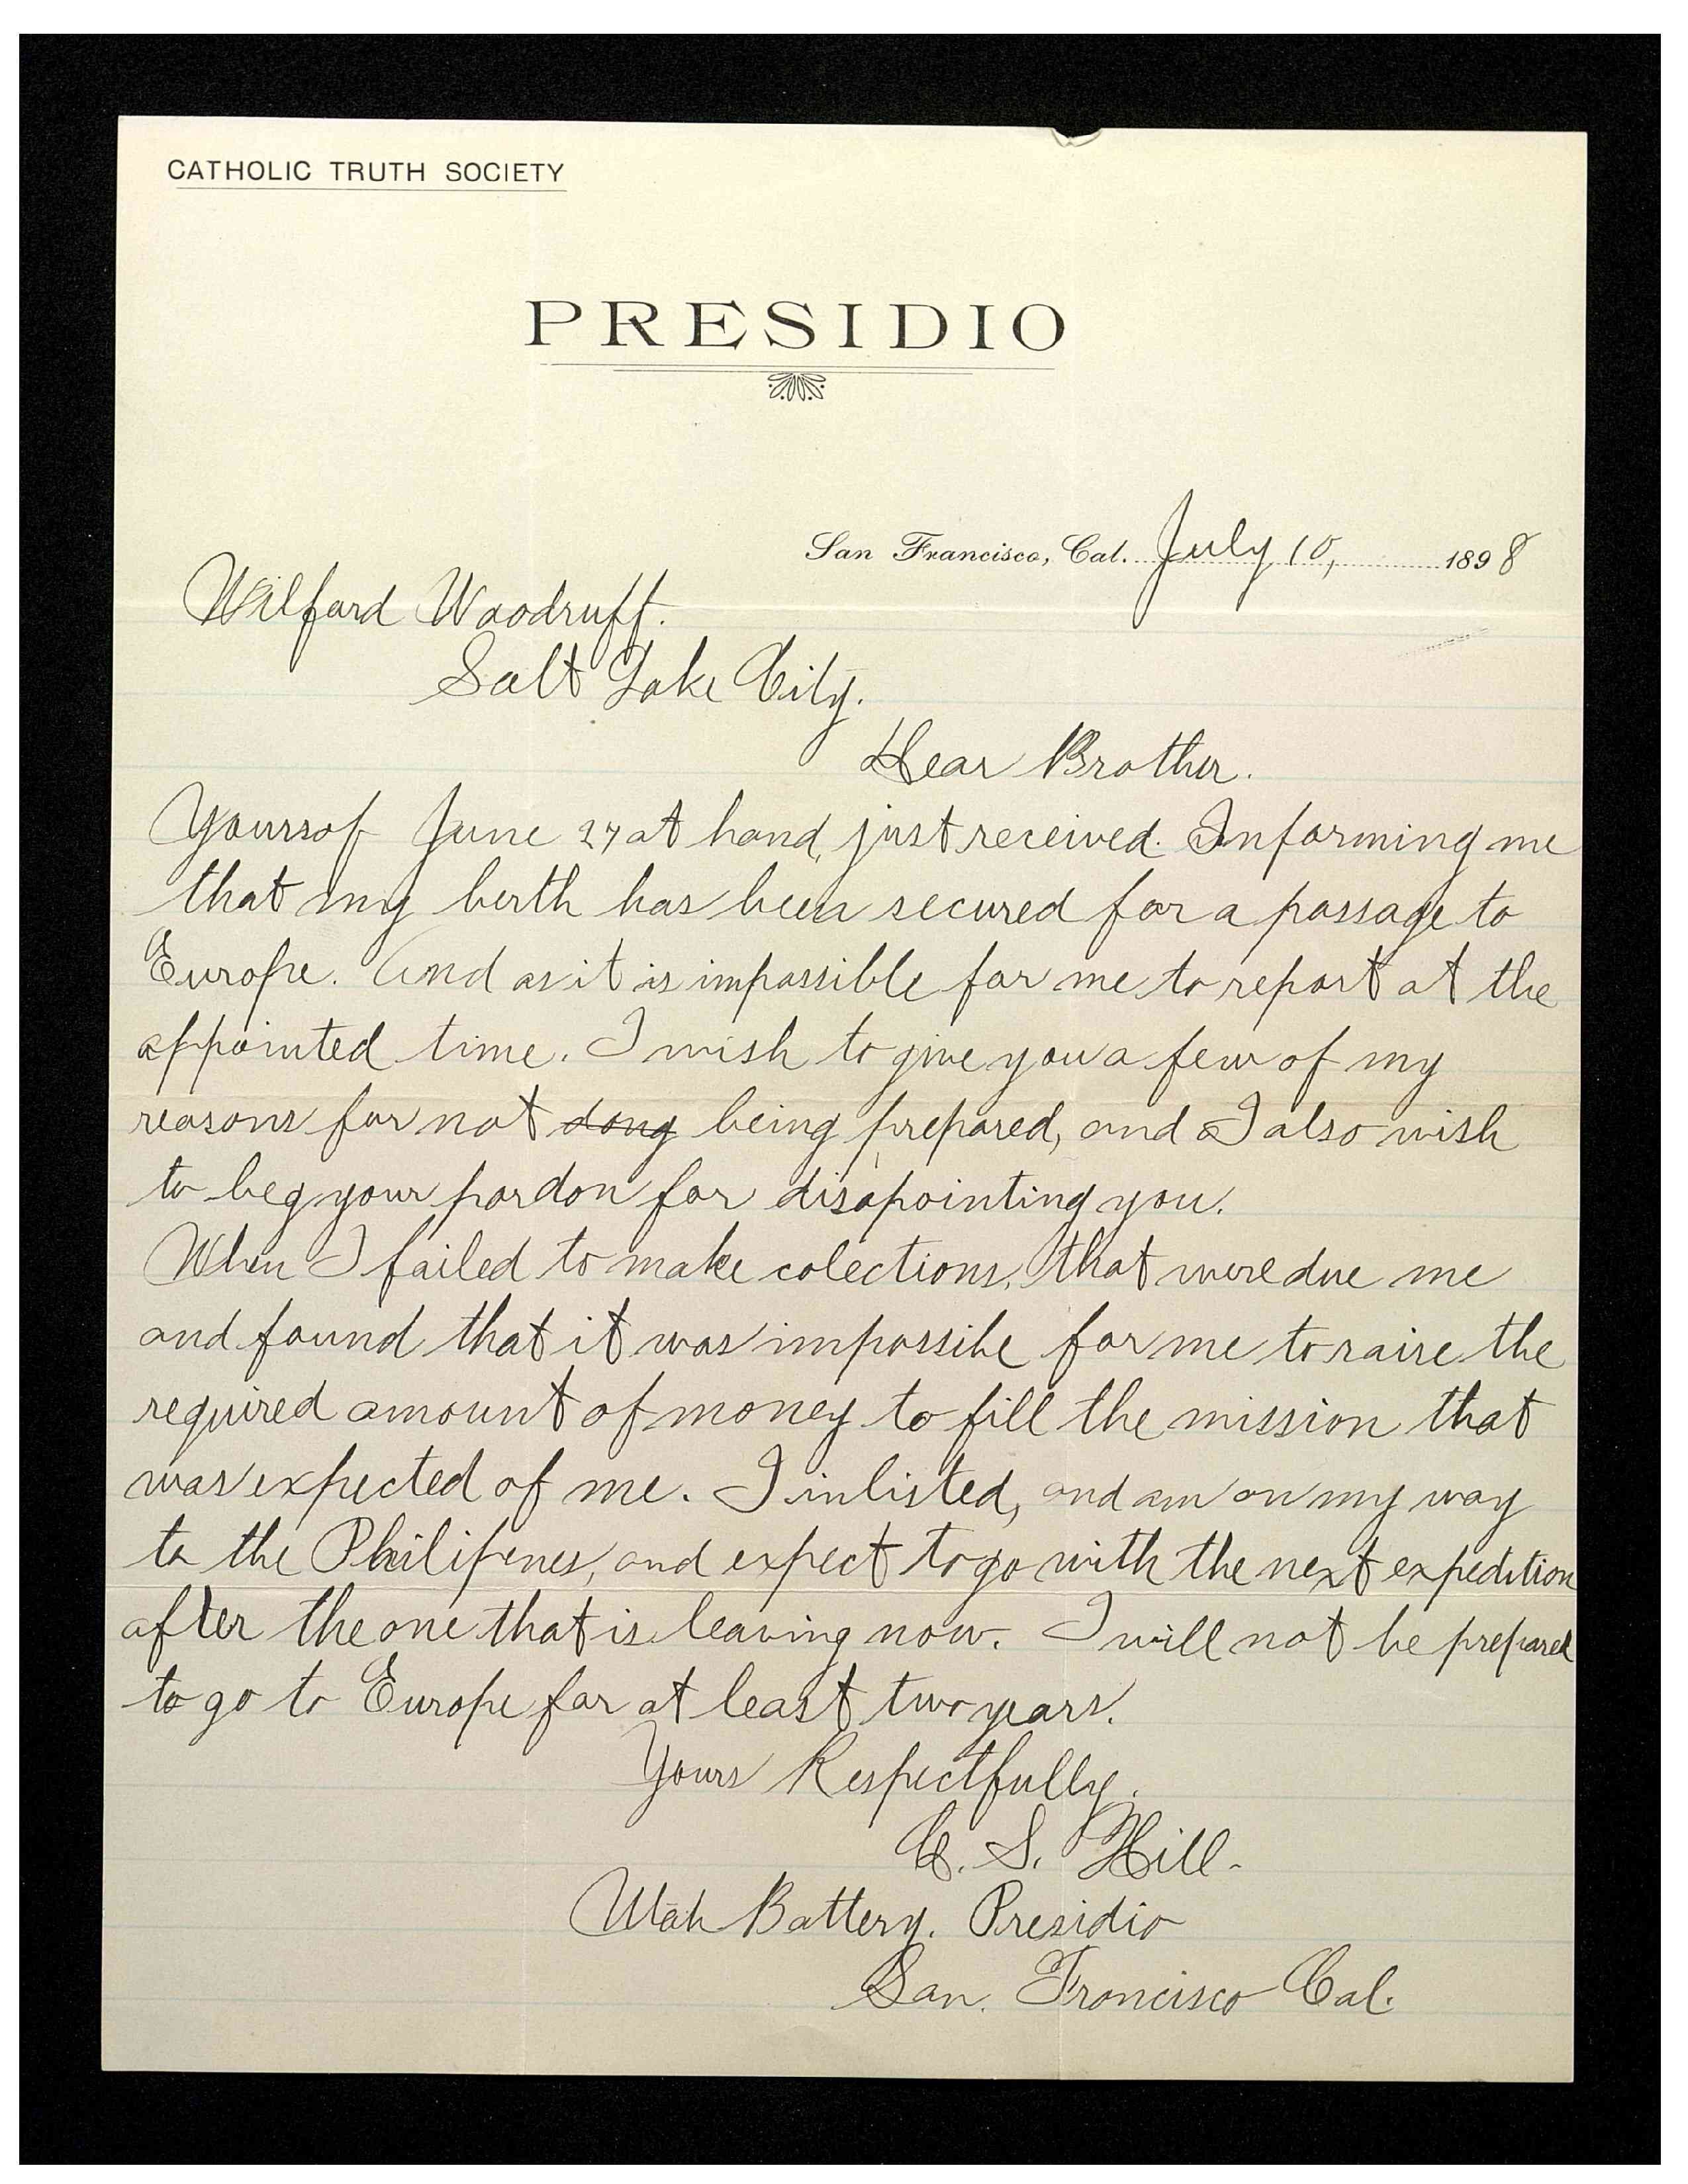 CATHOLIC TRUTH SOCIETY
PRESIDIO
San Francisco, Cal. July 10, 1898
Wilford Woodruff.
Salt Lake City.
Dear Brother.
Yours of June 27 at hand, just received. Informing me
that my berth has been secured for a passage to
Europe. And as it is impossible for me to report at the
appointed time. I wish to give you a few of my
reasons for not dong being prepared, and I also wish
to beg your pardon for disapointing you.
When I failed to make colections, that were due me
and found that it was impossibe for me to raise the
required amount of money to fill the mission that
was expected of me. I inlisted, and am on my way
to the Philipenes, and expect to go with the next expedition
after the one that is leaving now. I will not be prepared
to go to Europe for at least two years.
Yours Respectfully.
C. S. Hill.
Utah Battery. Presidio
San. Francisco Cal.